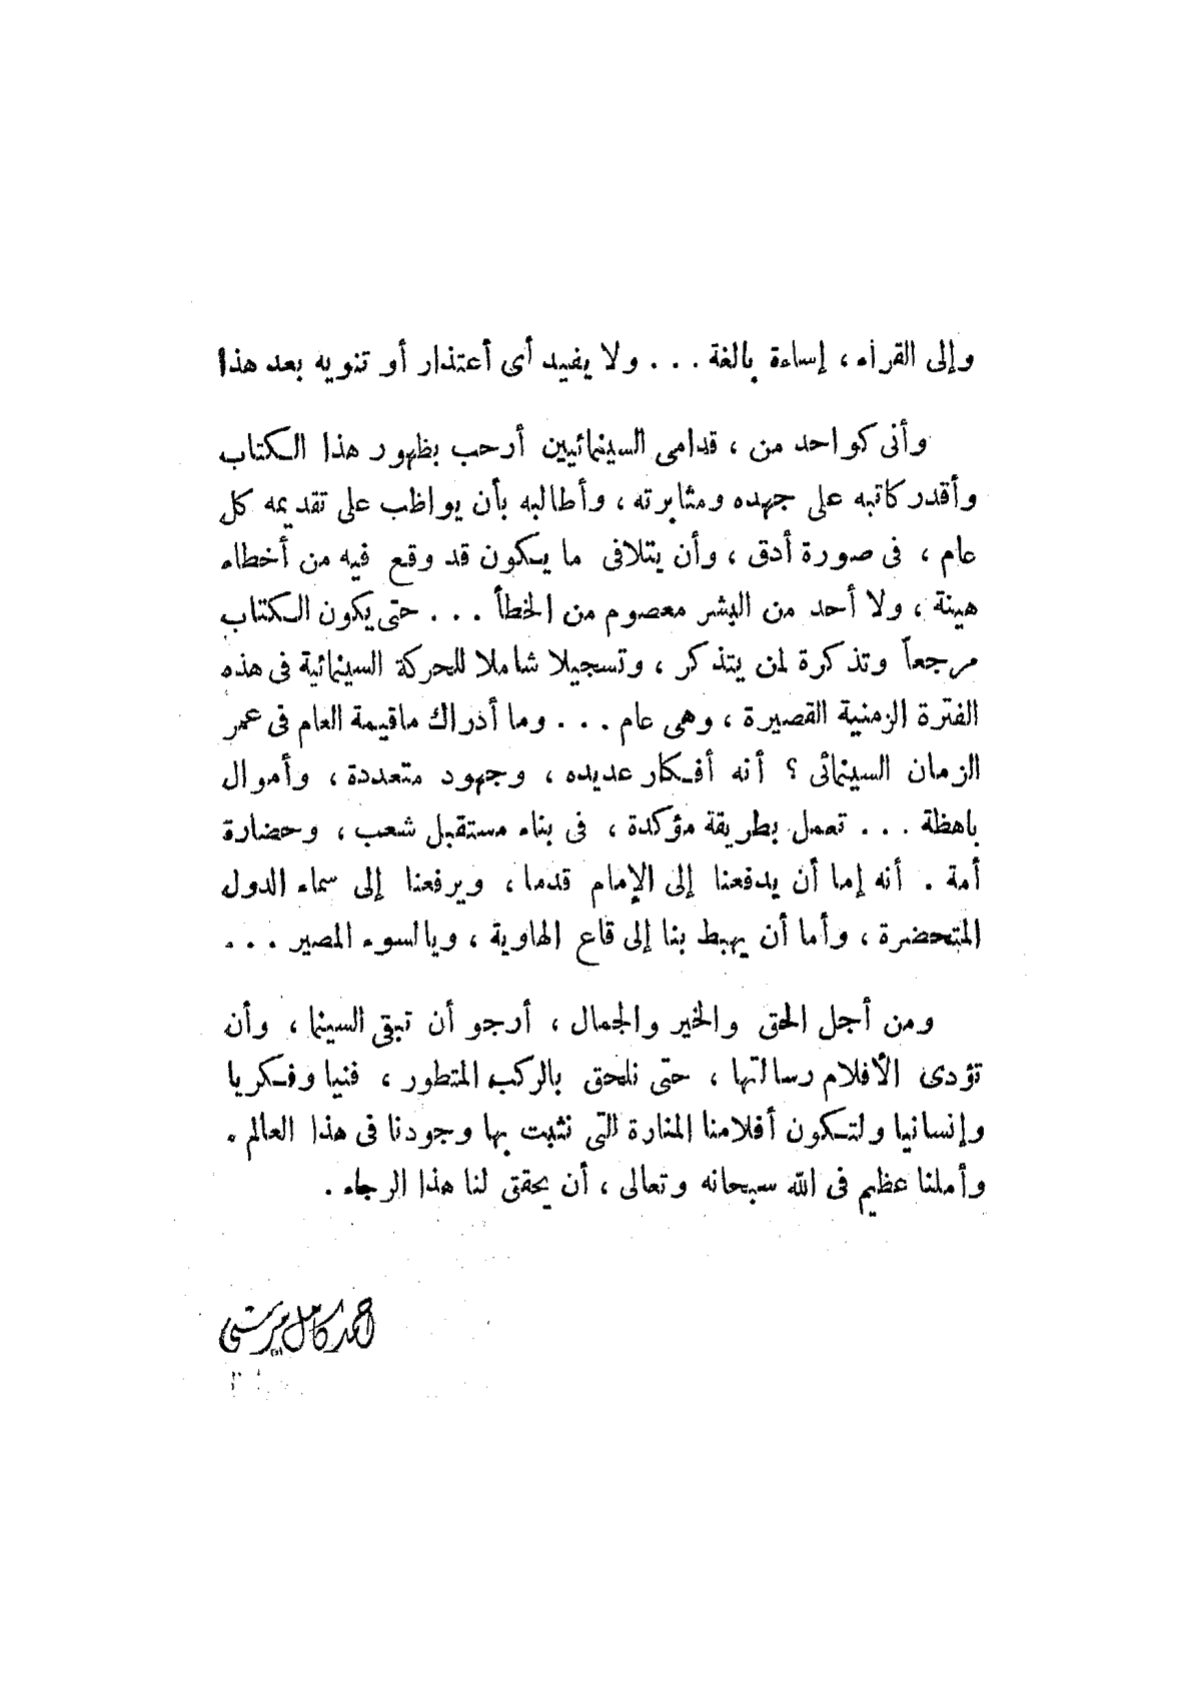 وإلى القراء ، إساءة بالغة . . . ولا يفيد أى أعتذار أو تنويه بعد هذا
وأنى كواحد من ، قدامى السينمائيين أرحب بظهور هذا الكتاب
وأقدر كاتبه على جهده ومثابرته ، وأطالبه بأن يواظب على تقديمه كل
عام ، فى صورة أدق ، وأن يتلافى ما يكون قد وقع فيه من أخطاء
هينة ، ولا أحد من البشر معصوم من الخطأ . . . حتى يكون الكتاب
مرجعاً وتذكرة لمن يتذكر ، وتسجيلا شاملا للحركة السينمائية فى هذه
الفترة الزمنية القصيرة ، وهى عام . . . وما أدراك ماقيمة العام فى عمر
الزمان السينمائى ؟ أنه أفكار عديده ، وجهود متعددة ، وأموال
باهظة . . . تعمل بطريقة مؤكدة ، فى بناء مستقبل شعب ، وحضارة
أمة . أنه إما أن يدفعنا إلى الإمام قدما ، ويرفعنا إلى سماء الدول
المتحضرة ، وأما أن يهبط بنا إلى قاع الهاوية ، ويالسوء المصير . . .
ومن أجل الحق والخير والجمال ، أرجو أن تبقى السينما ، وأن
تؤدى الأفلام رسالتها ، حتى نلحق بالركب المتطور ، فنيا وفكريا
وإنسانيا ولتكون أفلامنا المنارة التى نثبت بها وجودنا فى هذا العالم .
وأملنا عظيم فى الله سبحانه وتعالى ، أن يحقق لنا هذا الرجاء .
احمد كامل مرسى